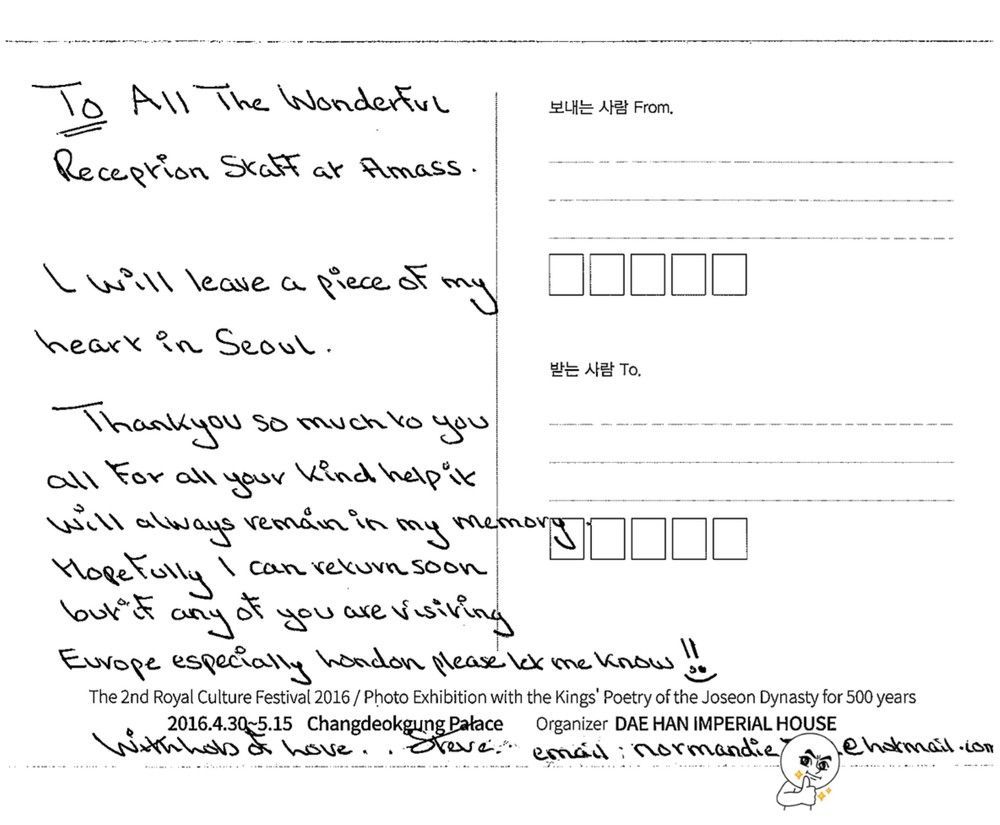 To All The Wonderful
Reception Staff at Amass.
I will leave a piece of my
heart in Seoul.
Thankyou so much to you
all for all your kind help it
will always remain in my memory.
Hopefully I can return soon
but if any of you are visiting
Europe especially London please let me know !!
보내는 사람 From.
받는 사람 To.
The 2nd Royal Culture Festival 2016 / Photo Exhibition with the Kings' Poetry of the Joseon Dynasty for 500 years
2016.4.30~5.15 Changdeokgung Palace Organizer DAE HAN IMPERIAL HOUSE
With lots of Love.. Steve. email : normandie @hotmail.com